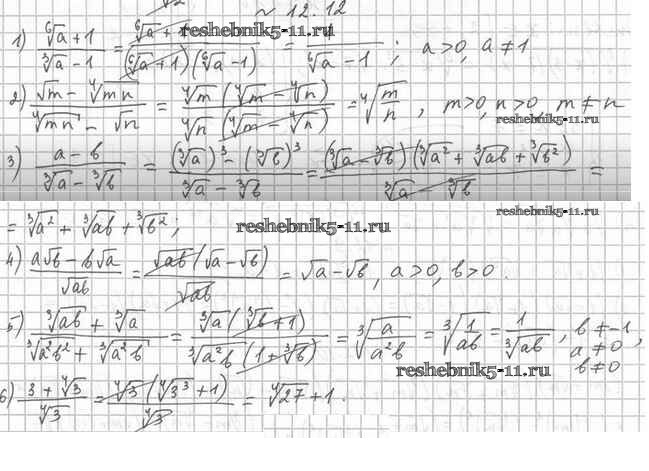 № 12.12
1) (⁶√a + 1)/(³√a − 1) = (⁶√a + 1)/((⁶√a + 1)(⁶√a − 1)) = 1/(⁶√a − 1); a>0, a≠1
reshebnik5-11.ru
2) (√m − ⁴√mn)/(⁴√mn − √n) = (⁴√m (⁴√m − ⁴√n))/(⁴√n (⁴√m − ⁴√n)) = ⁴√(m/n), m>0, n>0, m≠n
reshebnik5-11.ru
3) (a − b)/(³√a − ³√b) = ((³√a)³ − (³√b)³)/(³√a − ³√b) = ((³√a − ³√b)(³√a² + ³√ab + ³√b²))/(³√a − ³√b) =
reshebnik5-11.ru
= ³√a² + ³√ab + ³√b²;
reshebnik5-11.ru
4) (a√b − b√a)/√ab = (√ab(√a − √b))/√ab = √a − √b, a>0, b>0.
5) (³√ab + ³√a)/(³√a²b² + ³√a²b) = (³√a(³√b + 1))/(³√a²b(1 + ³√b)) = ³√(a/a²b) = ³√(1/ab) = 1/³√ab, b≠−1, a≠0, b≠0
reshebnik5-11.ru
6) (3 + ⁴√3)/⁴√3 = (⁴√3(⁴√3³ + 1))/⁴√3 = ⁴√27 + 1.